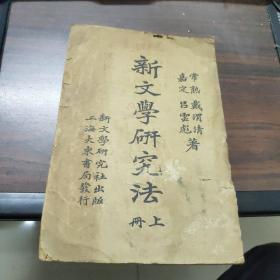 常熟戴渭清
嘉定呂雲彪
著
新文學研究法
上册
新文學研究社出版
上海大東書局發行